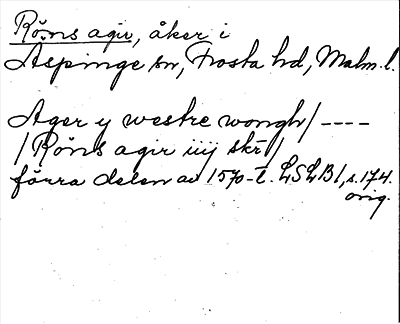 Röns agir, åker i
Aspinge sn, Frosta hd, Malm. l.
Ager y westre wongh / ----
/ Röns agir iiij skr /
förra delen av 1570-t. LSLB 1, s. 174.
orig.